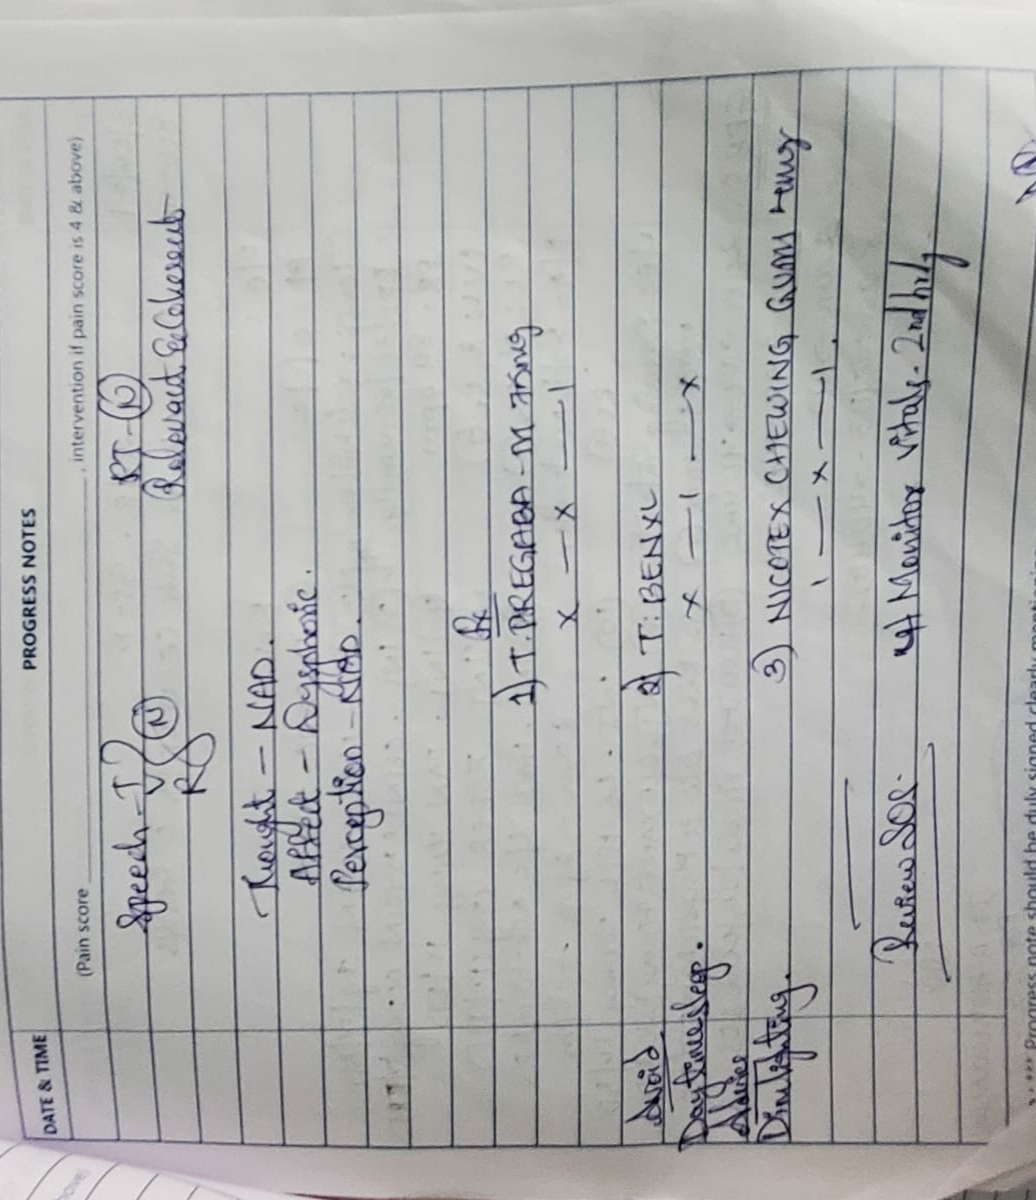 PROGRESS NOTES
DATE & TIME
(Pain score ____________, intervention if pain score is 4 & above)
Speech - I RT - (N)
V (N) Relevant & Coherent
R
Thought - NAD.
Affect - Dysphoric.
Perception - NAD.
Rx
1) T. PREGABA - M 75mg
x — x — 1
Avoid 2) T. BENXL
Daytime sleep. x — 1 — x
Advice
Dim lighting. 3) NICOTEX CHEWING GUM 4mg
1 — x — 1.
Review SOS. Monitor Vitals - 2nd hrly
**** Progress note should be duly signed clearly